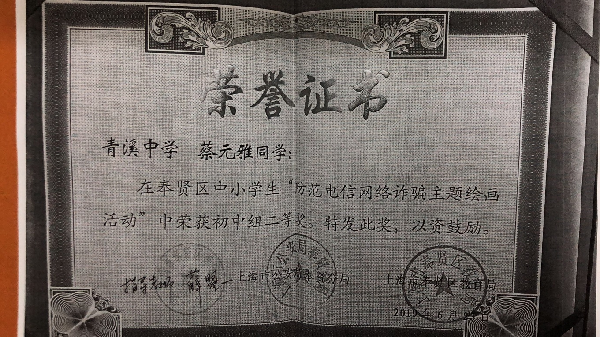 荣誉证书
青溪中学 蔡元雅同学：
在奉贤区中小学生“防范电信网络诈骗主题绘画
活动”中荣获初中组二等奖。特发此奖，以资鼓励。
指导老师 薛贤一